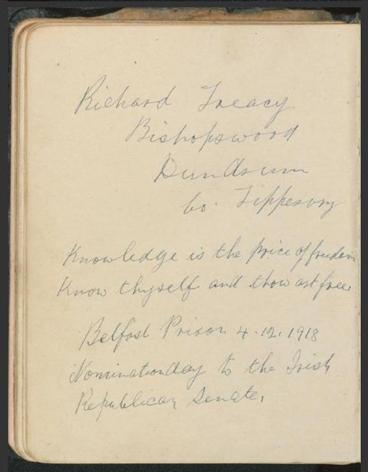 Richard Treacy
Bishopswood
Dundrum
Co. Tipperary
Knowledge is the price of freedom
Know thyself and thou art free.
Belfast Prison 4.12.1918
Nomination day to the Irish
Republican Senate.